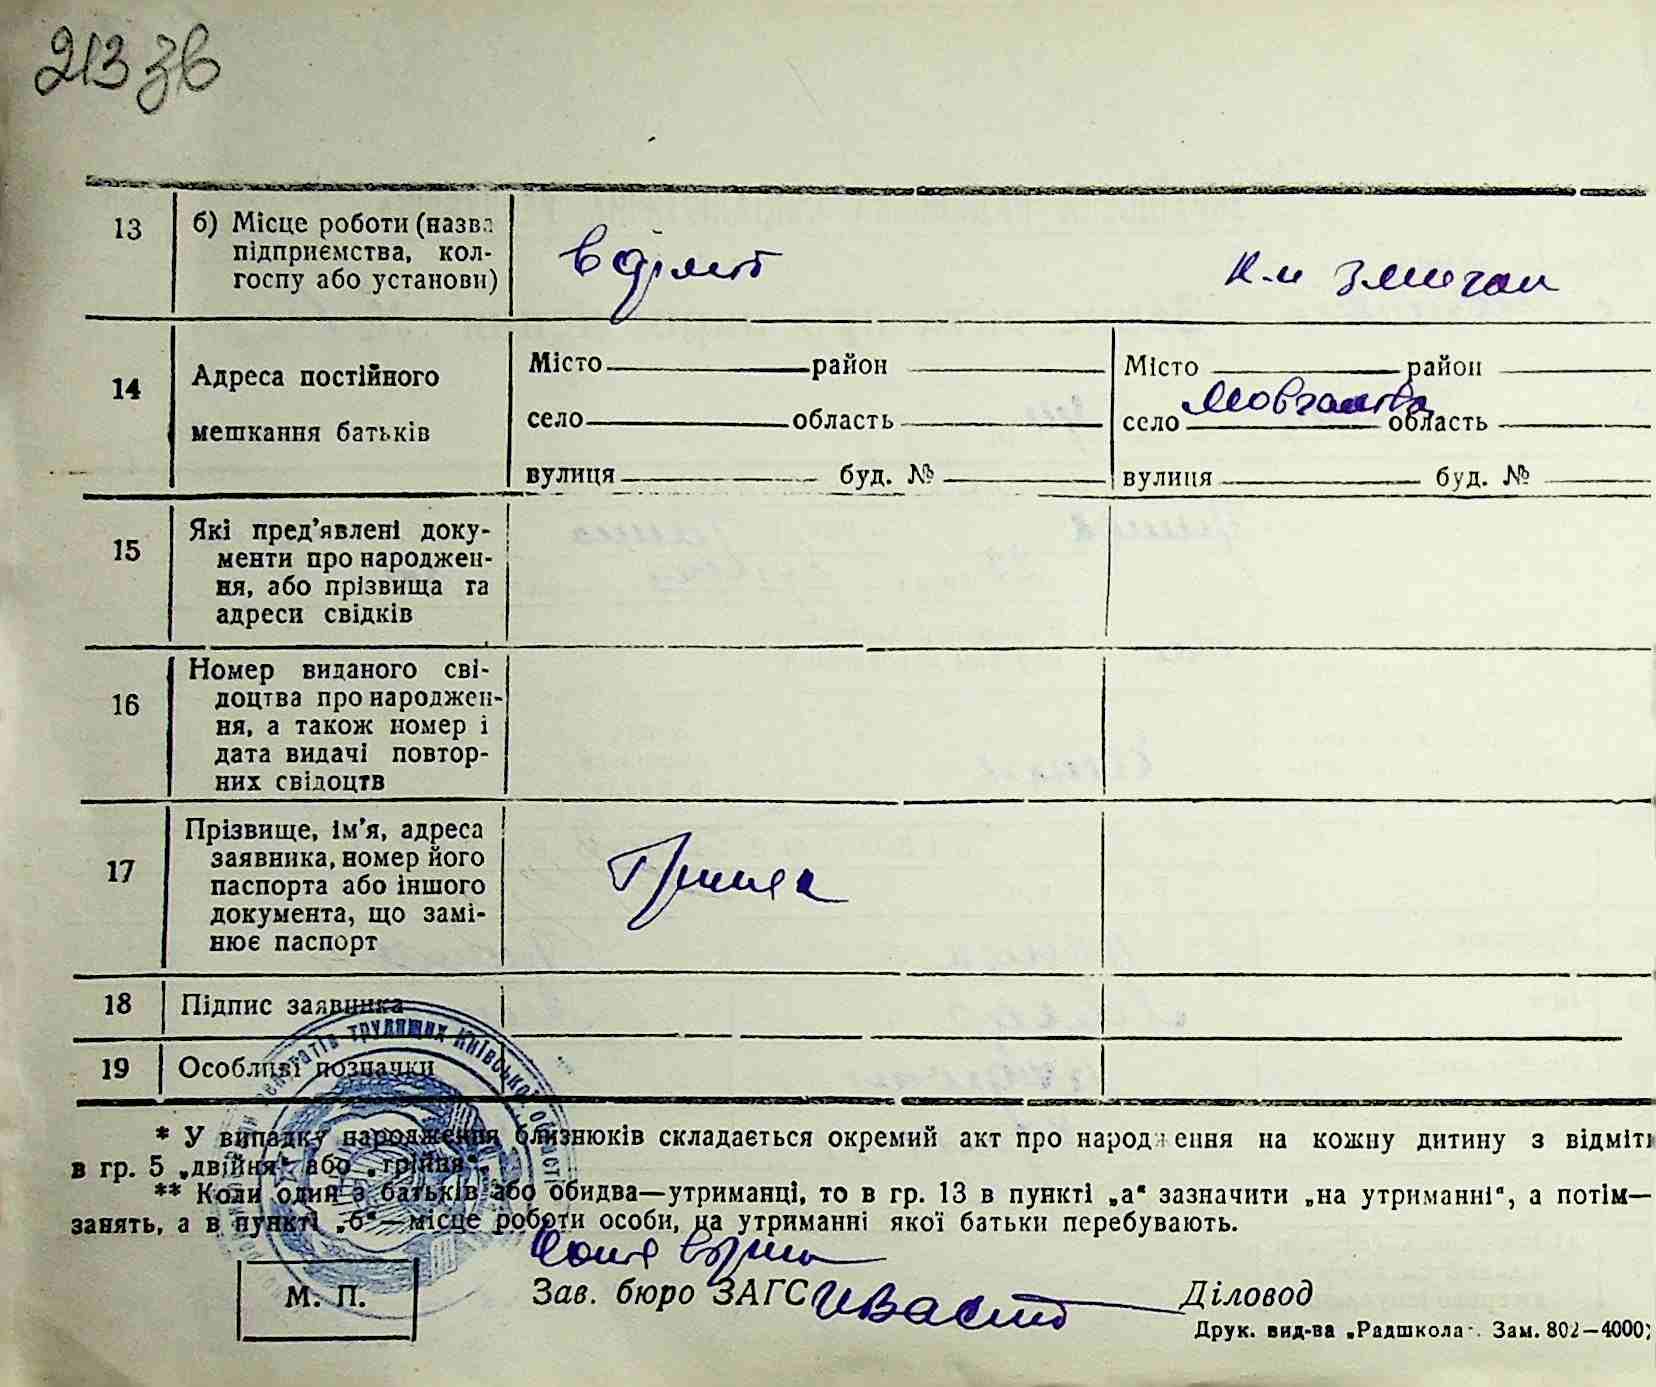 213 зв
13
б) Місце роботи (назва
підприємства, кол-
госпу або установи)
в армії
14
Адреса постійного
мешкання батьків
Місто район
село область
вулиця буд. №
Місто район
село область
вулиця буд. №
15
Які пред'явлені доку-
менти про народжен-
ня, або прізвища та
адреси свідків
16
Номер виданого сві-
доцтва про народжен-
ня, а також номер і
дата видачі повтор-
них свідоцтв
17
Прізвище, ім'я, адреса
заявника, номер його
паспорта або іншого
документа, що замі-
нює паспорт
18
Підпис заявника
19
Особливі позначки
депутатів трудящих Київської області
* У випадку народження близнюків складається окремий акт про народження на кожну дитину з відміт
в гр. 5 „двійня“ або „трійня“.
** Коли один з батьків або обидва—утриманці, то в гр. 13 в пункті „а“ зазначити „на утриманні“, а потім—
занять, а в пункті „б“—місце роботи особи, на утриманні якої батьки перебувають.
М. П.
Зав. бюро ЗАГС
Діловод
Друк. вид-ва „Радшкола“. Зам. 802—4000;